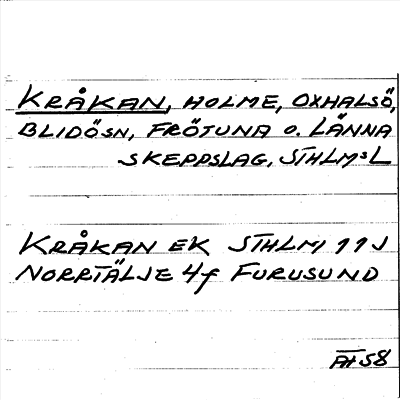 KRÅKAN, HOLME, OXHALSÖ,
BLIDÖSN, FRÖTUNA O. LÄNNA
SKEPPSLAG, STHLMSL
KRÅKAN EK STHLM 11J
NORRTÄLJE 4f FURUSUND
AH 58